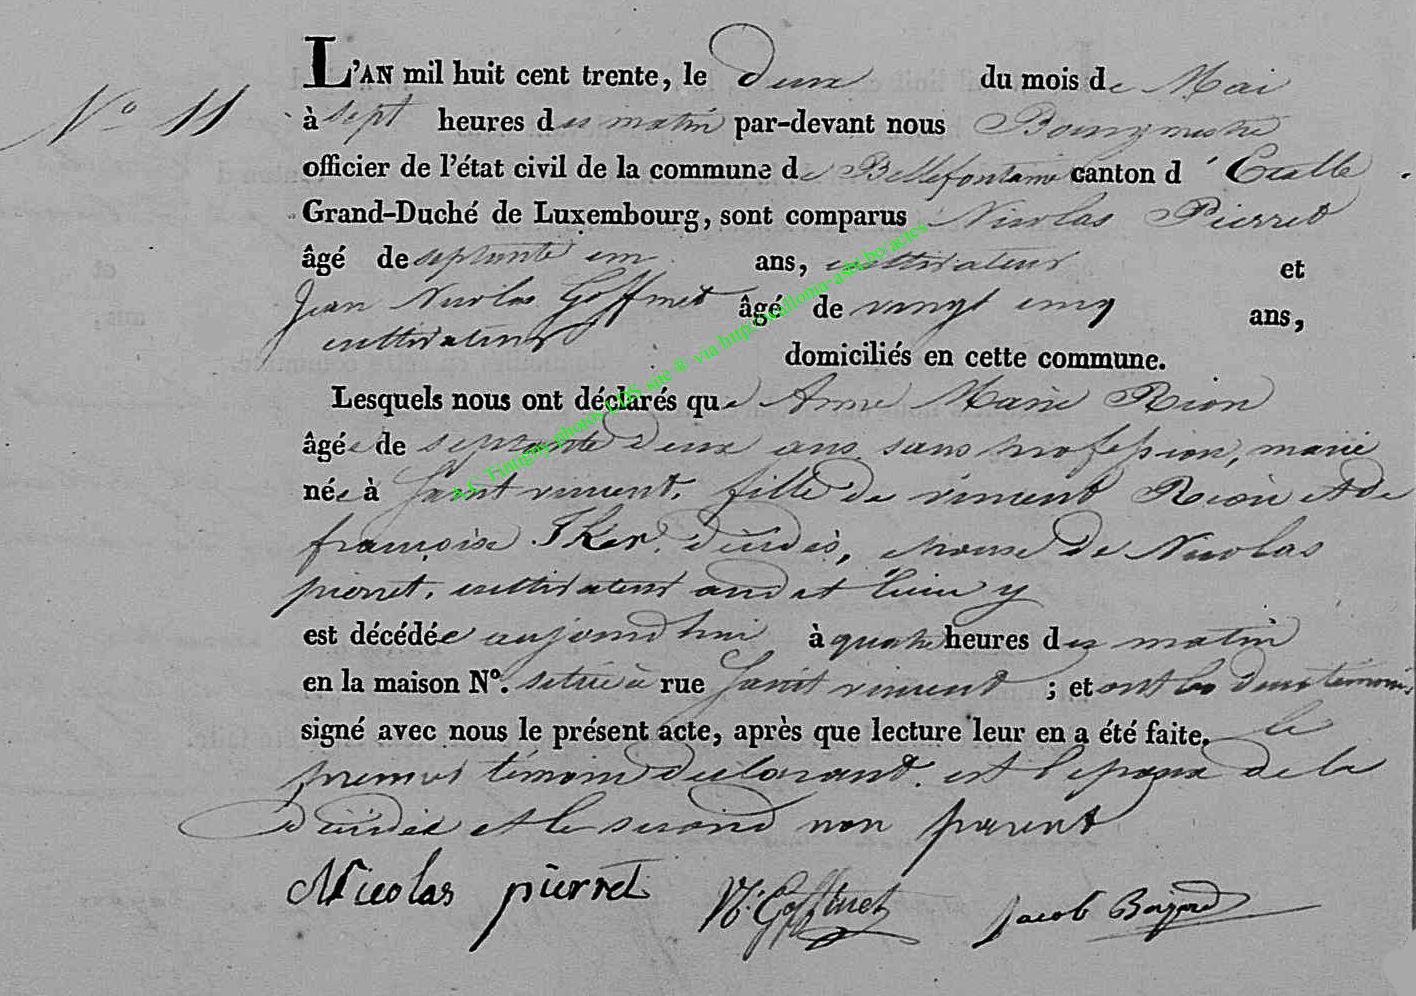 L'AN mil huit cent trente, le deux du mois de Mai
N° 11
à sept heures du matin par-devant nous Bourgmestre
officier de l'état civil de la commune de Bellefontaine canton d'Etalle
Grand-Duché de Luxembourg, sont comparus Nicolas Pierret
âgé de septante un ans, cultivateur et
Jean Nicolas Goffinet âgé de vingt cinq ans,
cultivateur domiciliés en cette commune.
Lesquels nous ont déclarés que Anne Marie Rion
âgée de septante deux ans sans profession, mariée
née à Saint vincent, fille de vincent Rion et de
françoise décédés, epouse de Nicolas
pierret, cultivateur audit lieu y
est décédée aujourdhui à quatre heures du matin
en la maison N°. située à rue Saint vincent ; et ont les deux témoins
signé avec nous le présent acte, après que lecture leur en a été faite. le
premier témoin declarant est l'epoux de la
décédée et le second non parent
Nicolas pierret N: Goffinet Jacob
A.C. Tintigny photos LDS site ® via http://wallonia-asbl.be/actes